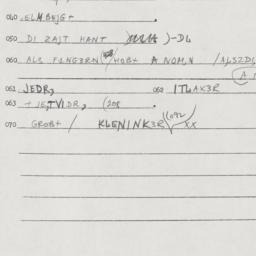 040 .ELMBEJGT .
050 DI ZAJT HANT )-DL
060 ALS FINGERN HOBT A NOM,N /ALSZDL
061 JEDR, 062 ITLAX3R
063 + JE,TVIDR, (208 .
070 GROBT / KLENINK3R XX